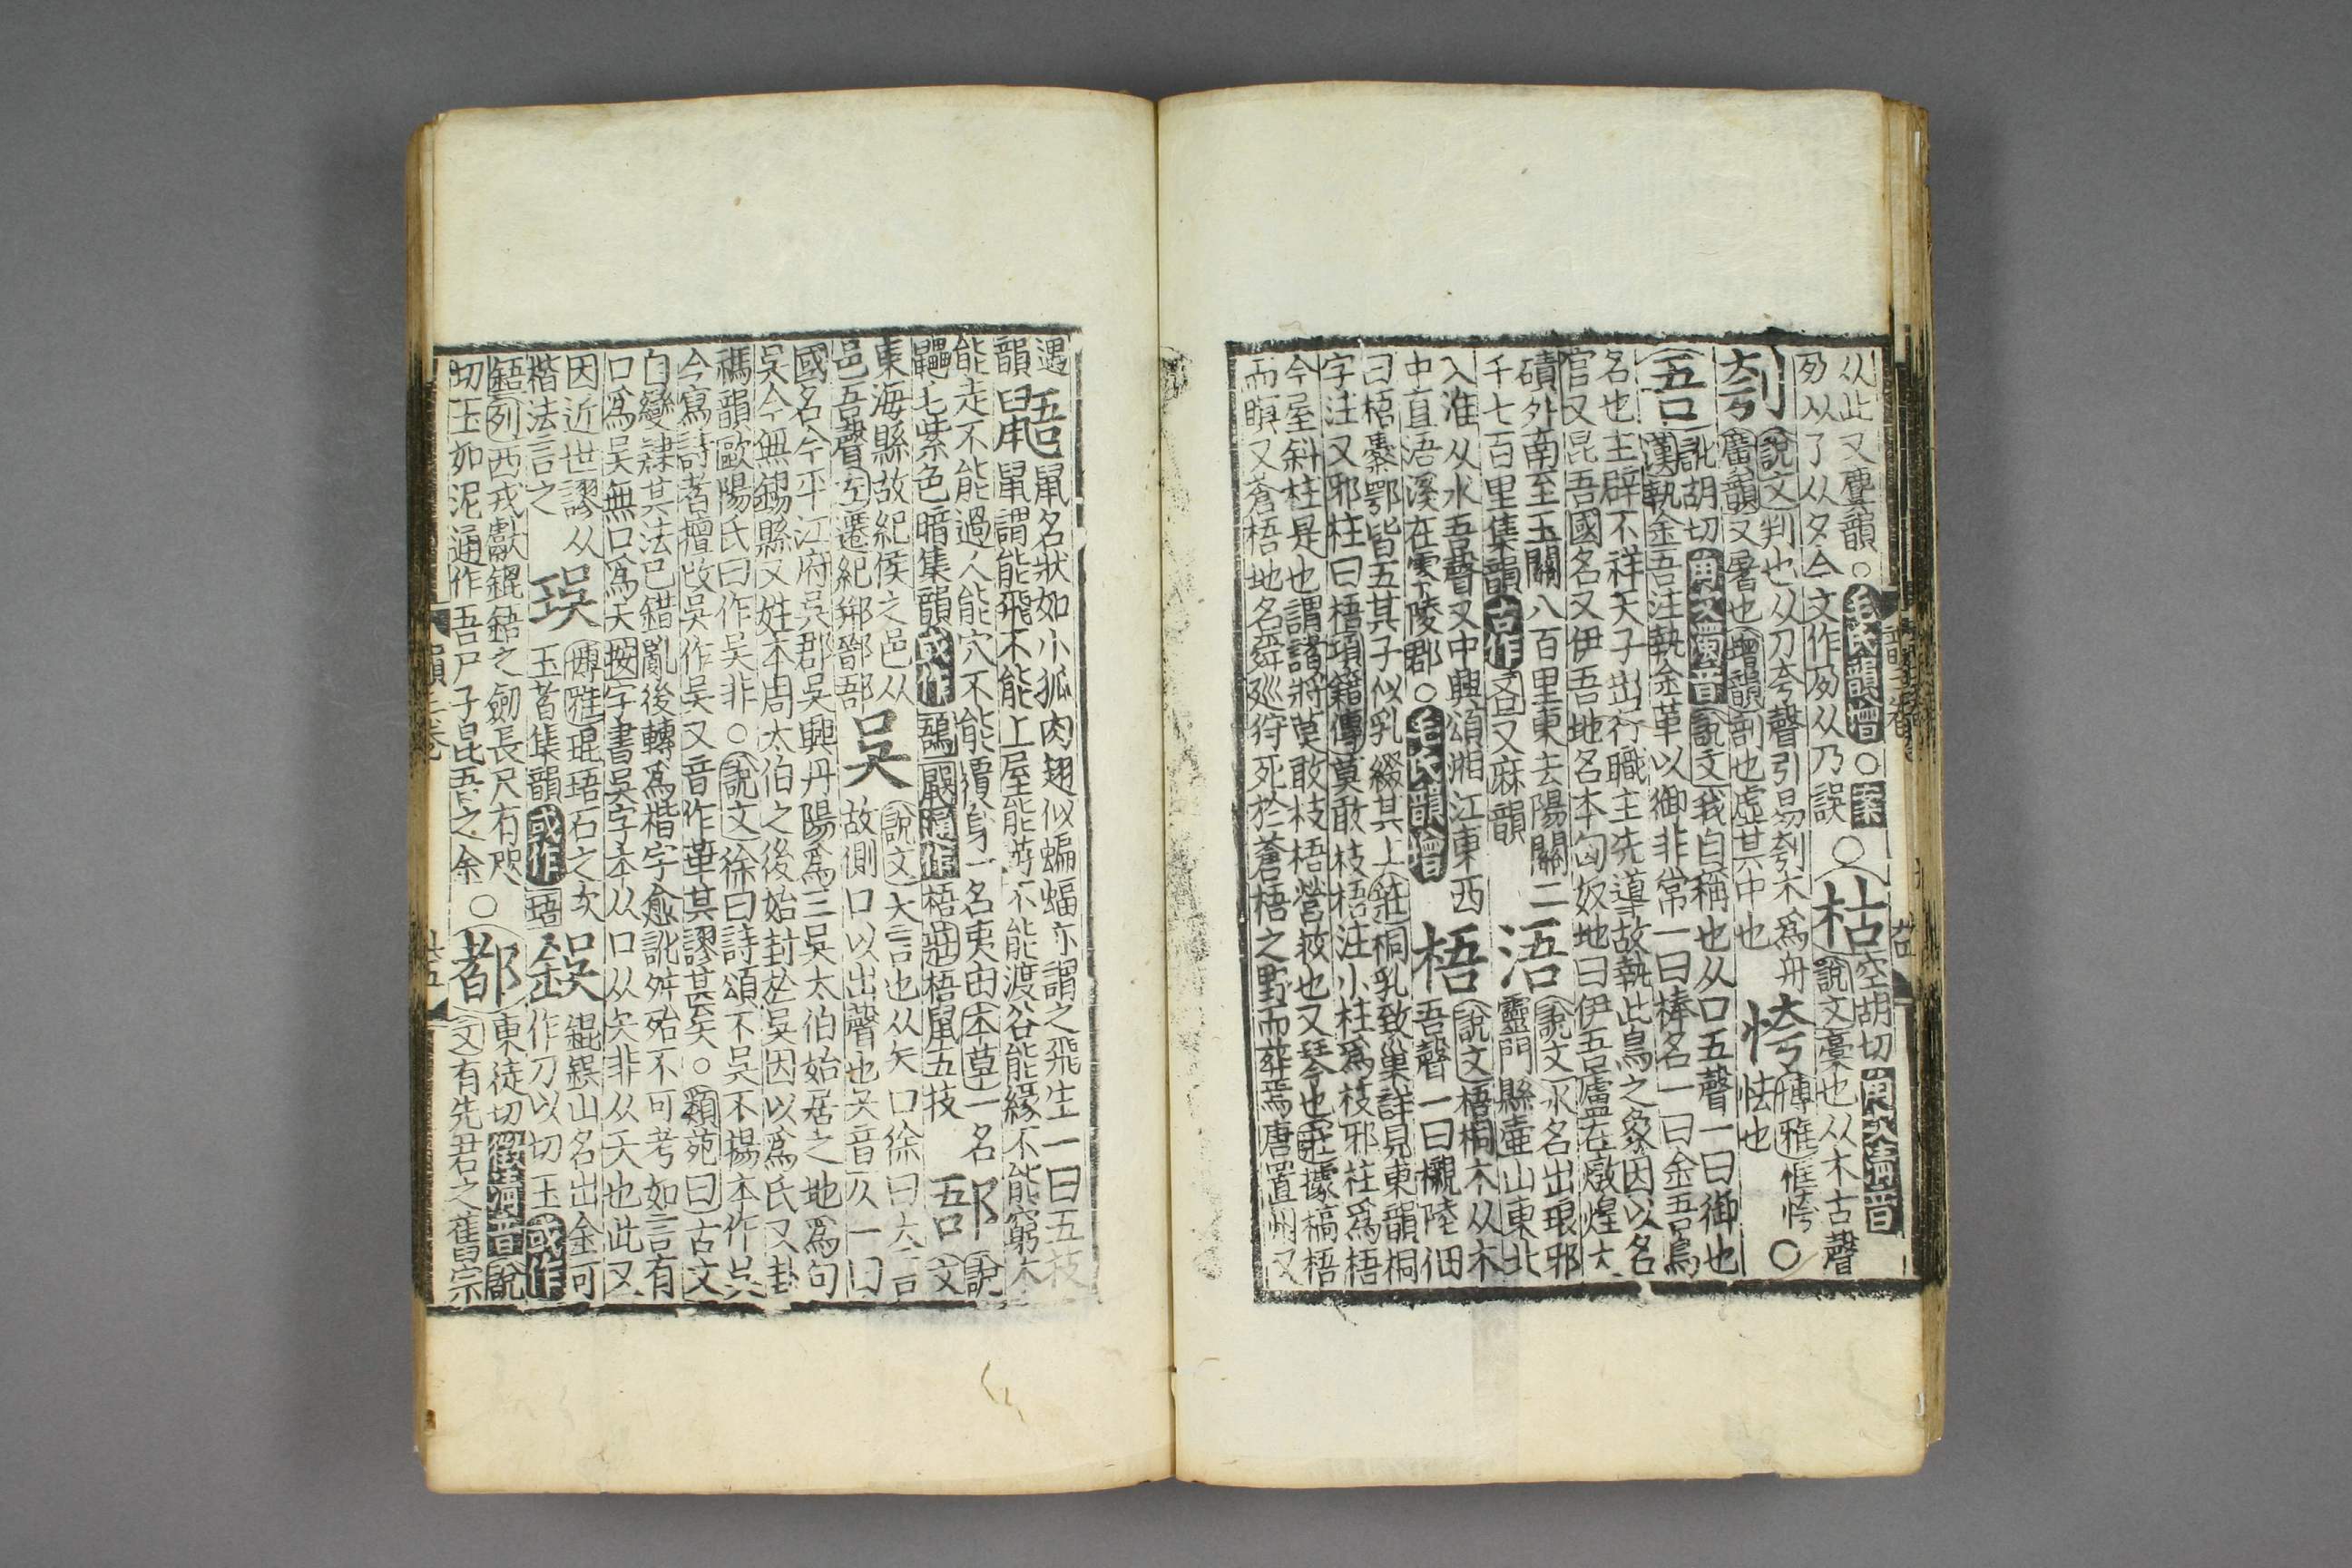 从此又麌韻○毛氏韻增○案○枯空胡切角次清音
夃从了从夕今文作夃从乃誤 說文槀也从木古聲
刳說文判也从刀夸聲引易刳木爲舟 恗博雅㤮恗○
廣韻又屠也增韻剖也虛其中也 怯也
吾訛胡切角次濁音說文我自稱也从口五聲一曰御也
漢執金吾注執金革以御非常一曰棒名一曰金吾鳥
名也主辟不祥天子出行職主先導故執此鳥之象因以名
官又昆吾國名又伊吾地名本匈奴地曰伊吾盧在燉煌大
磧外南至玉關八百里東去陽關二 浯說文水名出琅邪
千七百里集韻古作 又麻韻 靈門縣壷山東北
入淮从水吾聲又中興頌湘江東西 梧說文梧桐木从木
中直浯溪在零陵郡○毛氏韻增 吾聲一曰櫬陸佃
曰梧櫜鄂皆五其子似乳綴其上莊桐乳致巢詳見東韻桐
字注又邪柱曰梧項籍傳莫敢枝梧注小柱爲枝邪柱爲梧
今屋斜柱是也謂諸將莫敢枝梧營救也又琴也莊據槁梧
而瞑又蒼梧地名舜廵狩死於蒼梧之野而葬焉唐置州又
遇 鼯鼠名狀如小狐肉翅似蝙蝠亦謂之飛生一曰五技
韻 鼠謂能飛不能上屋能游不能渡谷能緣不能窮木
能走不能過人能穴不能覆身一名夷由本草一名 郚說
鼺七紫色暗集韻或作䴎爾通作梧莊梧鼠五技 文
東海縣故紀侯之邑从 吳說文大言也从矢口徐曰大言
邑吾聲左遷紀郱鄑郚 故側口以出聲也矢音仄一曰
國名今平江府吳郡吳興丹陽爲三吳太伯始居之地爲句
吳今無錫縣又姓本周太伯之後始封於吳因以爲氏又卦
禡韻歐陽氏曰作吴非○說文徐曰詩頌不吳不揚本作吳
今寫詩者擅改吳作吴又音作華其謬甚矣○類苑曰古文
自變隷其法已錯亂後轉爲楷字愈訛舛殆不可考如言有
口爲吳無口爲天按字書吳字本从口从矢非从天也此又
因近世謬从 珸博雅琨珸石之次 鋘錕鋘山名出金可
楷法言之 玉者集韻或作珸 作刀以切玉或作
鋙列西戎獻錕鋙之劒長尺有咫 ○都東徒切徵清音說
切玉如泥通作吾尸子昆吾之金 文有先君之舊宗